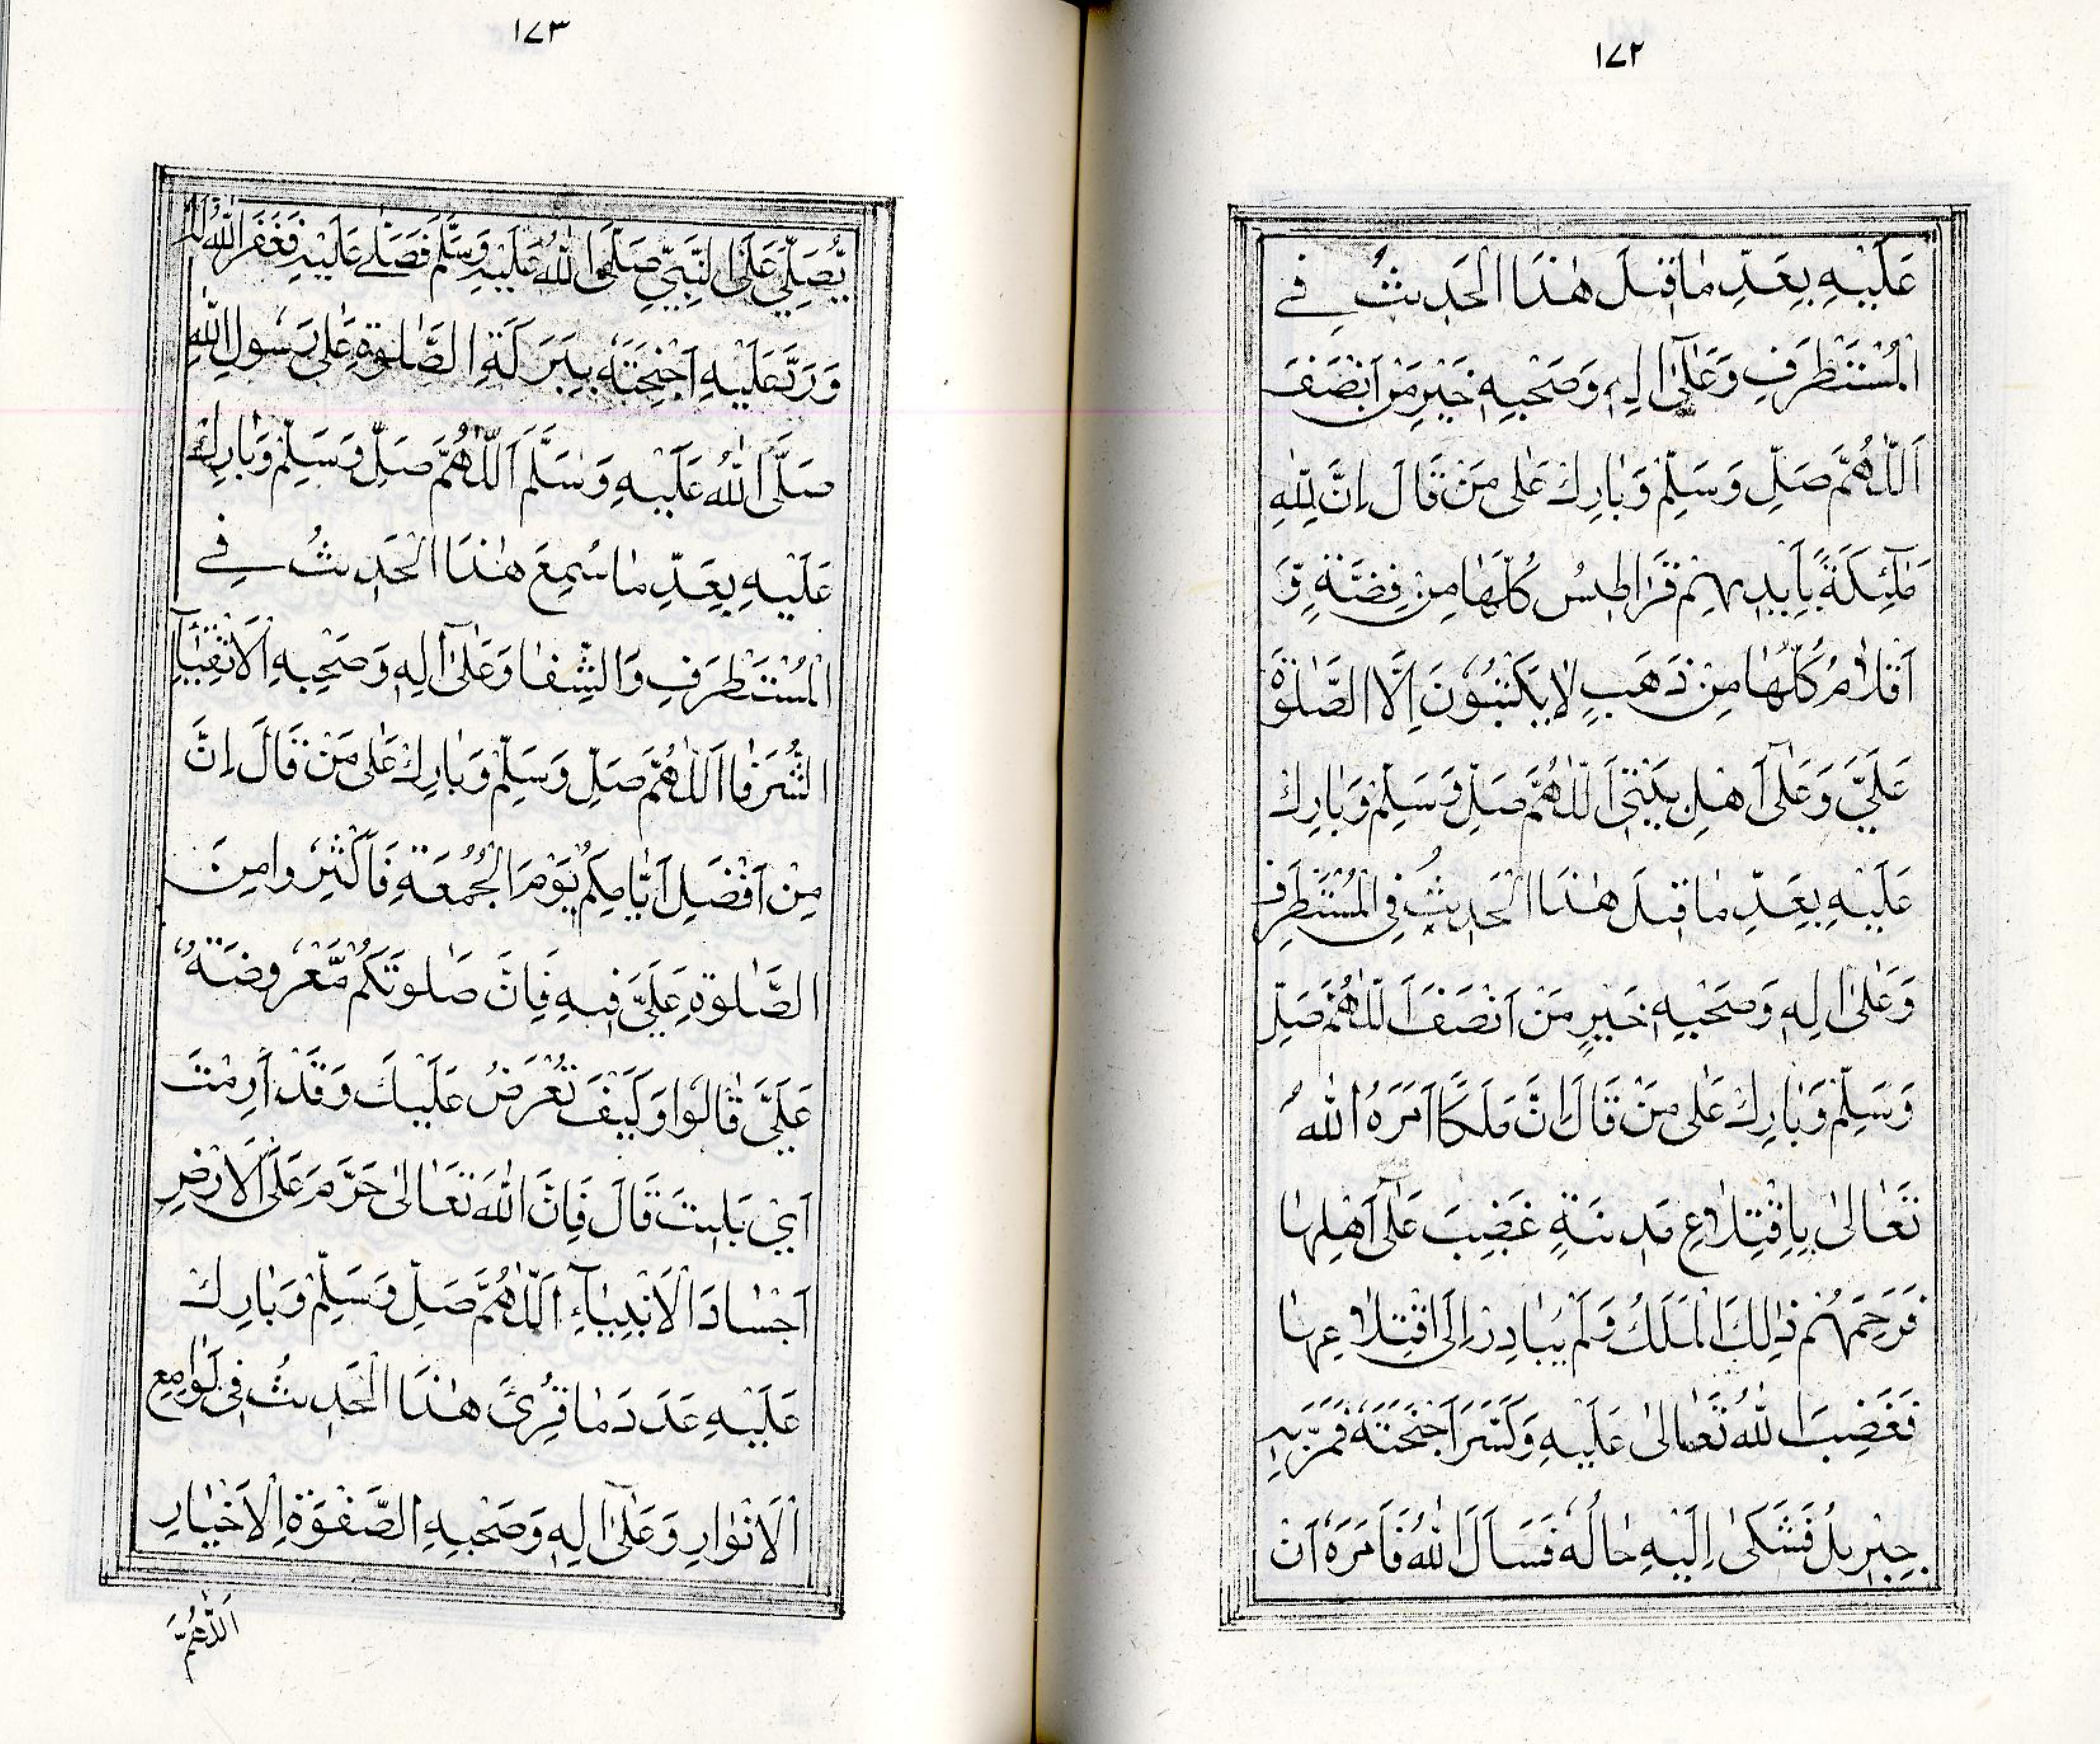 ١٧٢
عَلَيْهِ بِعَدِّ مَا قِيلَ هٰذَا الْحَدِيثُ فِي
الْمُسْتَطْرَفِ وَعَلٰٓى اٰلِهٖ وَصَحْبِهٖ خَيْرِ مَنْ اَنْصَفَ
اَللّٰهُمَّ صَلِّ وَسَلِّمْ وَبَارِكْ عَلٰى مَنْ قَالَ اِنَّ لِلّٰهِ
مَلٰٓئِكَةً بِاَيْدِيهِمْ قَرَاطِيسُ كُلُّهَا مِنْ فِضَّةٍ وَّ
اَقْلَامٌ كُلُّهَا مِنْ ذَهَبٍ لَا يَكْتُبُوْنَ اِلَّا الصَّلٰوةَ
عَلَيَّ وَعَلٰٓى اَهْلِ بَيْتِي اَللّٰهُمَّ صَلِّ وَسَلِّمْ وَبَارِكْ
عَلَيْهِ بِعَدِّ مَا قِيلَ هٰذَا الْحَدِيثُ فِي الْمُسْتَطْرَفِ
وَعَلٰٓى اٰلِهٖ وَصَحْبِهٖ خَيْرِ مَنْ اَنْصَفَ اَللّٰهُمَّ صَلِّ
وَسَلِّمْ وَبَارِكْ عَلٰى مَنْ قَالَ اِنَّ مَلَكًا اَمَرَهُ اللّٰهُ
تَعَالٰى بِاقْتِلَاعِ مَدِينَةٍ غَضِبَ عَلٰٓى اَهْلِهَا
فَرَحِمَهُمْ ذٰلِكَ الْمَلَكُ وَلَمْ يُبَادِرْ اِلَى اقْتِلَاعِهَا
فَغَضِبَ اللّٰهُ تَعَالٰى عَلَيْهِ وَكَسَّرَ اَجْنِحَتَهٗ فَمَرَّ بِهٖ
جِبْرِيلُ فَشَكٰى اِلَيْهِ حَالَهٗ فَسَاَلَ اللّٰهَ فَاَمَرَهٗ اَنْ
١٧٣
يُّصَلِّيَ عَلَى النَّبِيِّ صَلَّى اللّٰهُ عَلَيْهِ وَسَلَّمَ فَصَلّٰى عَلَيْهِ فَغَفَرَ اللّٰهُ لَهٗ
وَرَدَّ عَلَيْهِ اَجْنِحَتَهٗ بِبَرَكَةِ الصَّلٰوةِ عَلٰى رَسُولِ اللّٰهِ
صَلَّى اللّٰهُ عَلَيْهِ وَسَلَّمَ اَللّٰهُمَّ صَلِّ وَسَلِّمْ وَبَارِكْ
عَلَيْهِ بِعَدِّ مَا سُمِعَ هٰذَا الْحَدِيثُ فِي
الْمُسْتَطْرَفِ وَالشِّفَا وَعَلٰٓى اٰلِهٖ وَصَحْبِهِ الْاَتْقِيَآءِ
الشُّرَفَا اَللّٰهُمَّ صَلِّ وَسَلِّمْ وَبَارِكْ عَلٰى مَنْ قَالَ اِنَّ
مِنْ اَفْضَلِ اَيَّامِكُمْ يَوْمَ الْجُمُعَةِ فَاَكْثِرُوا مِنَ
الصَّلٰوةِ عَلَيَّ فِيهِ فَاِنَّ صَلٰوتَكُمْ مَّعْرُوضَةٌ
عَلَيَّ قَالُوا وَكَيْفَ تُعْرَضُ عَلَيْكَ وَقَدْ اَرِمْتَ
اَيْ بَلِيتَ قَالَ فَاِنَّ اللّٰهَ تَعَالٰى حَرَّمَ عَلَى الْاَرْضِ
اَجْسَادَ الْاَنْبِيَآءِ اَللّٰهُمَّ صَلِّ وَسَلِّمْ وَبَارِكْ
عَلَيْهِ عَدَدَ مَا قُرِئَ هٰذَا الْحَدِيثُ فِي لَوَامِعِ
الْاَنْوَارِ وَعَلٰٓى اٰلِهٖ وَصَحْبِهِ الصَّفْوَةِ الْاَخْيَارِ
اَللّٰهُمَّ